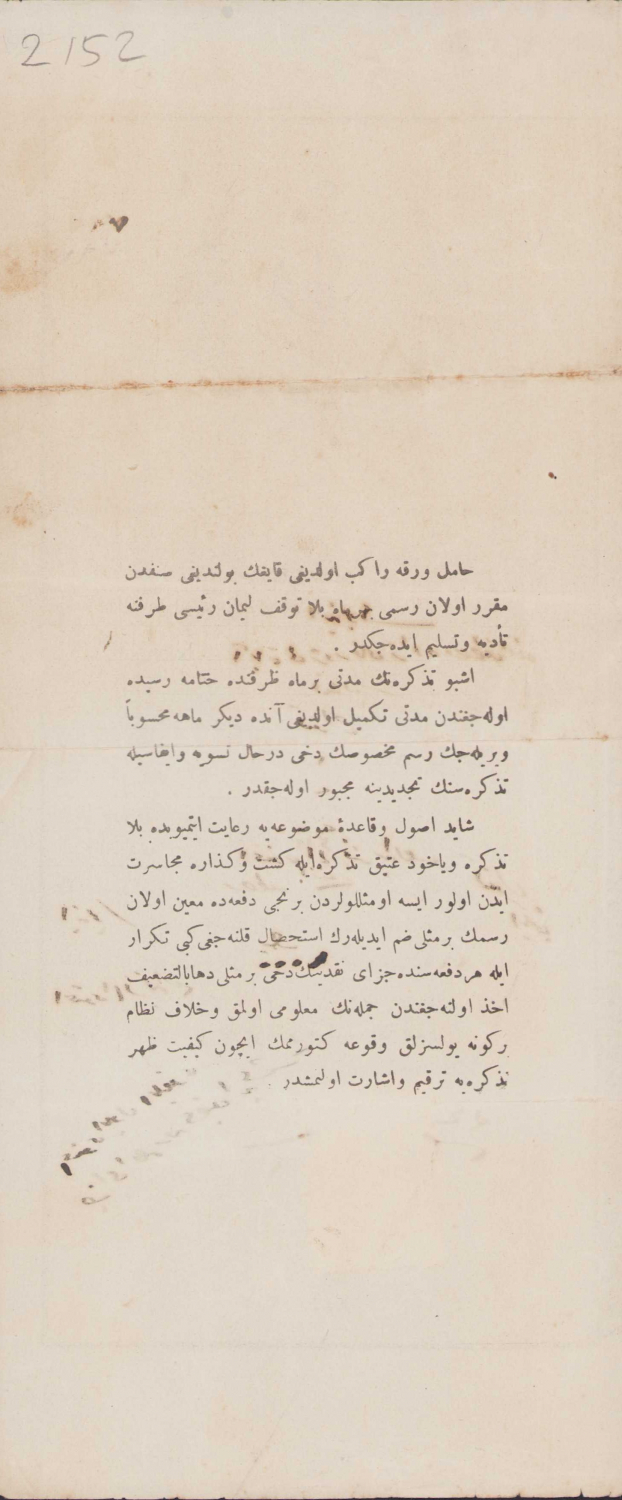 2152
حامل ورقه راكب اولديغی قايغك بولنديغی صنفدن
مقرر اولان رسمی بهرماه بلا توقف ليمان رئيسی طرفنه
تأديه وتسليم ايده‌جكدر .
اشبو تذكره‌نك مدتی برماه ظرفنده ختامه رسيده
اوله‌جغندن مدتی تكميل اولديغی آنده ديكر ماهه محسوباً
ويريله‌جك رسم مخصوصك دخی درحال تسويه وايفاسيله
تذكره‌سنك تجديدينه مجبور اوله‌جقدر .
شايد اصول وقاعدهٔ موضوعه‌يه رعايت ايتميوبده بلا
تذكره وياخود عتيق تذكره ايله كشت وكذاره مجاسرت
ايدن اولور ايسه اومثللولردن برنجی دفعه‌ده معين اولان
رسمك برمثلی ضم ايديله‌رك استحصال قلنه‌جغی كبی تكرار
ايله هردفعه‌سنده جزای نقدينك دخی برمثلی دها بالتضعيف
اخذ اولنه‌جغندن جمله‌نك معلومی اولمق وخلاف نظام
بركونه يولسزلق وقوعه كتورممك ايچون كيفيت ظهر
تذكره‌يه ترقيم واشارت اولنمشدر .